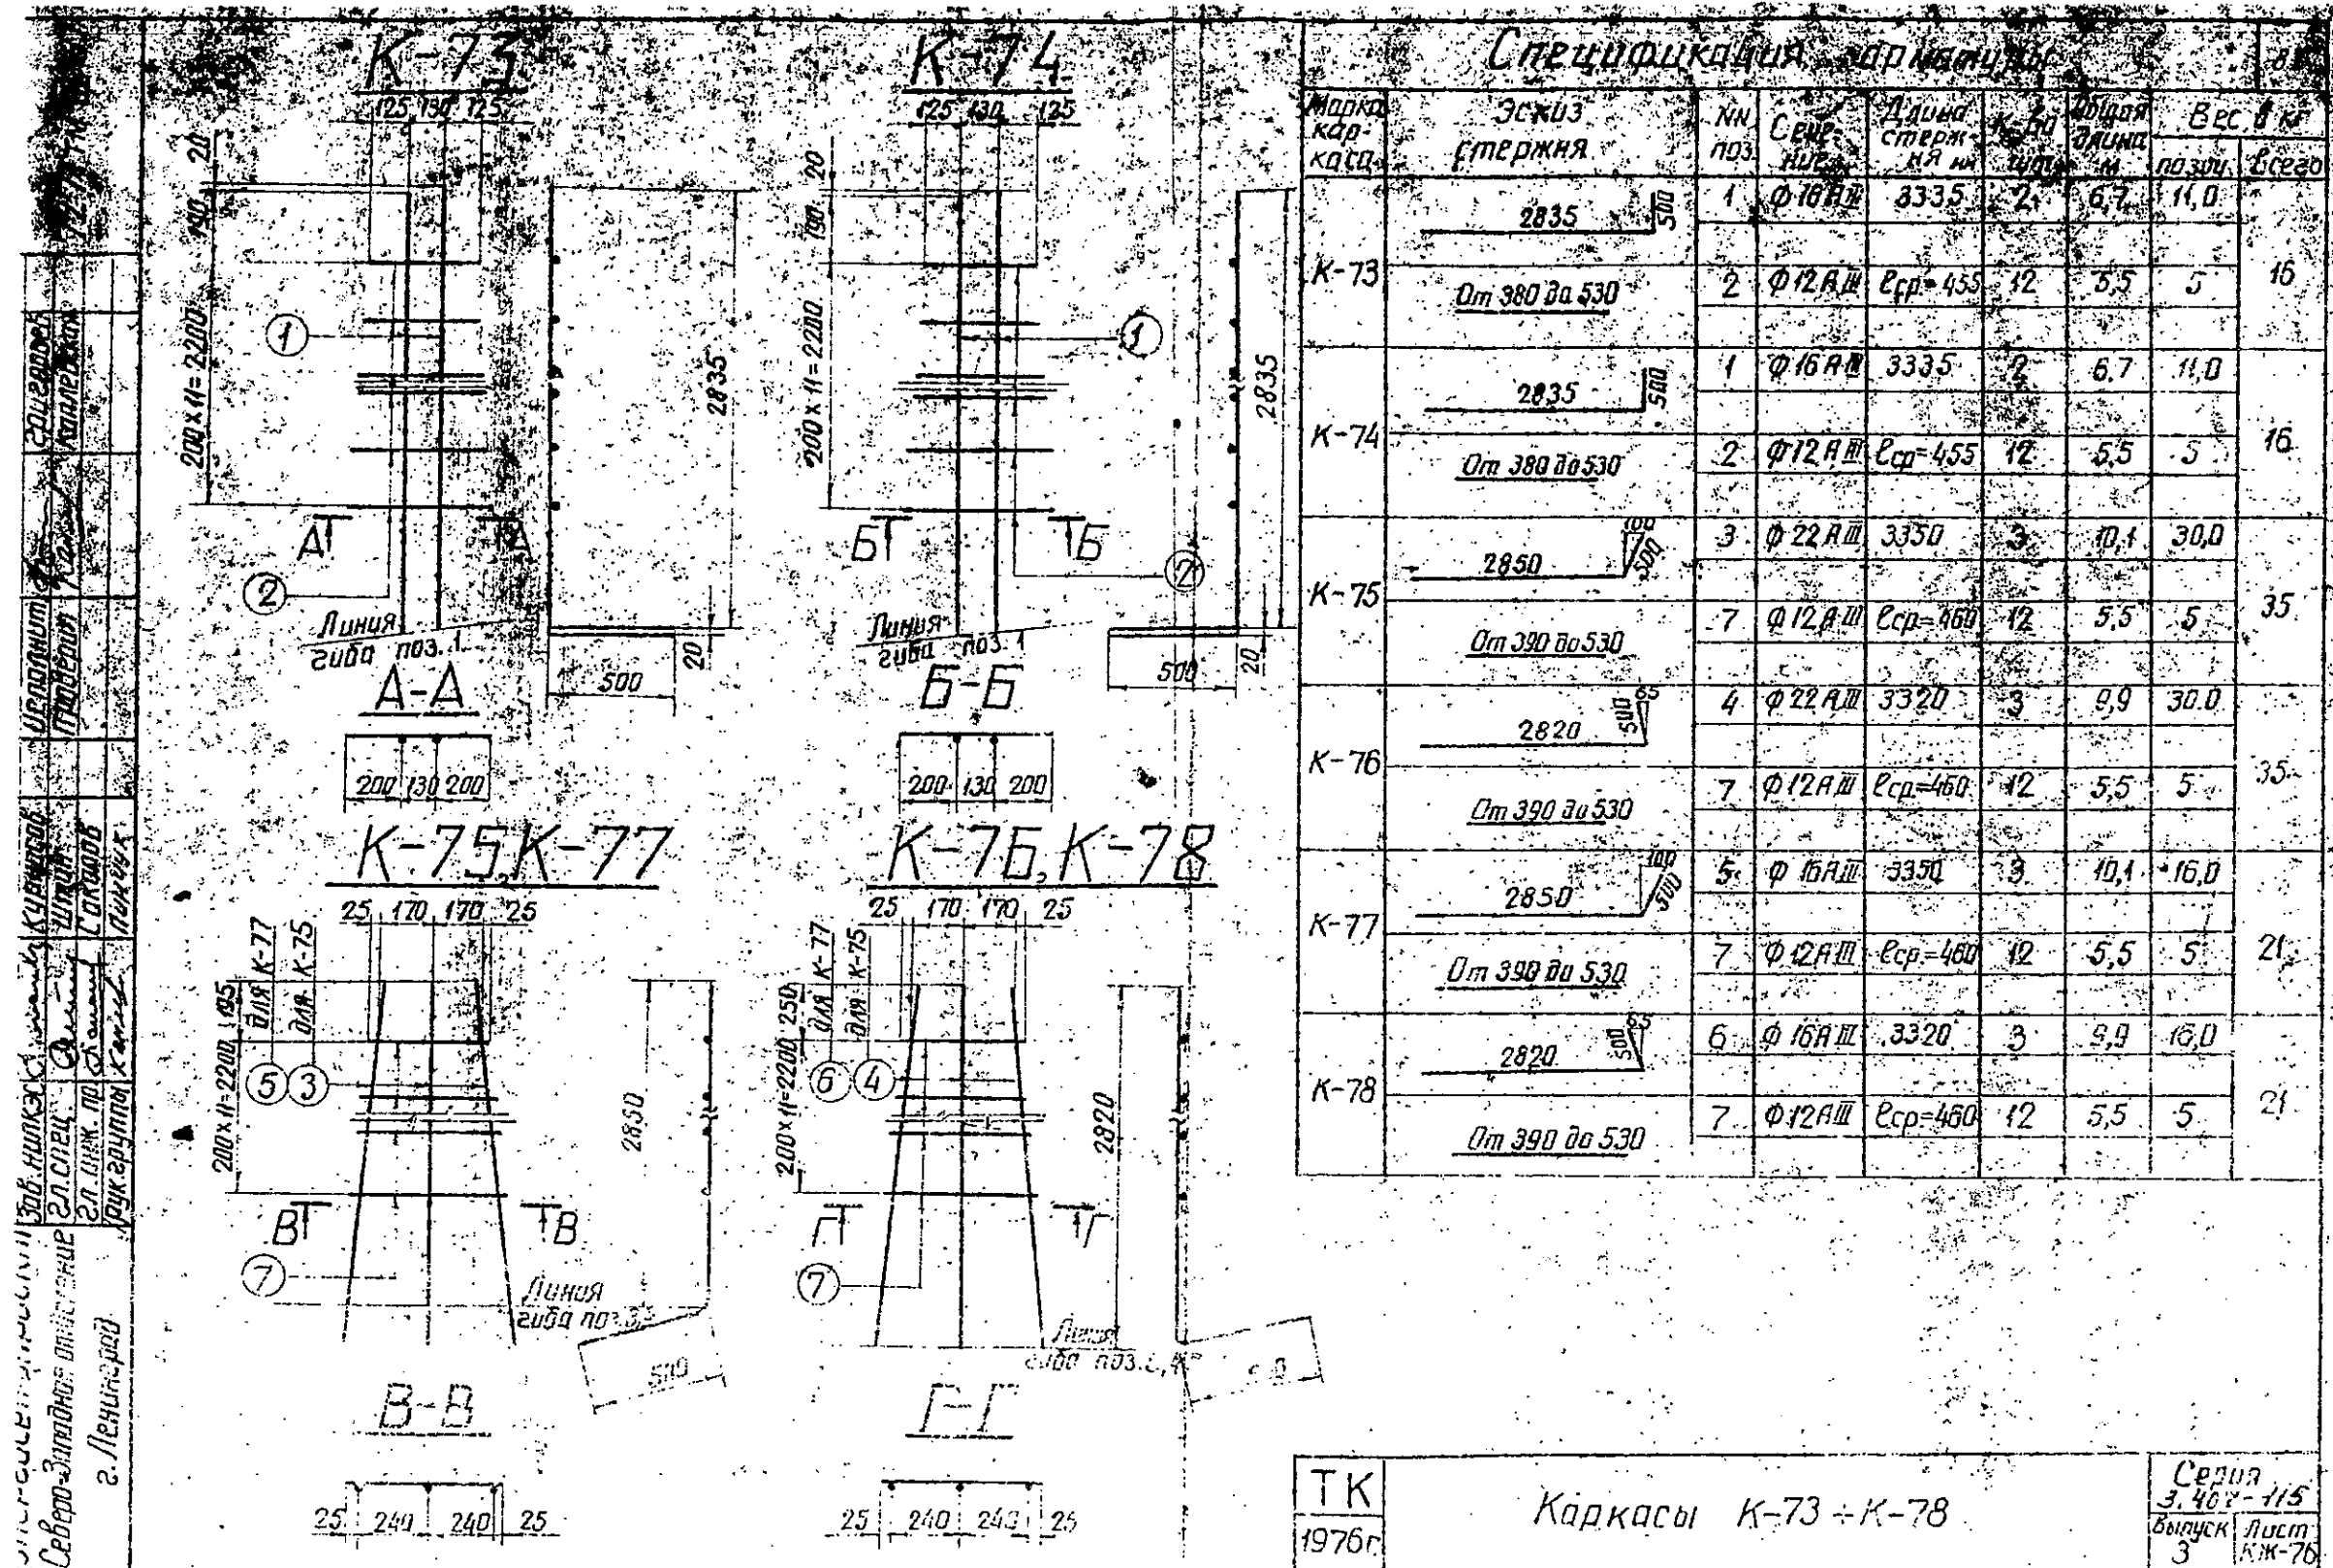 К-73
125 130 125
20
190
200 x 11 = 2200
1
2
А А
Линия
гиба поз. 1
2835
20
500
А-А
200 130 200
К-74
125 130 125
20
190
200 x 11 = 2200
1
2
Б Б
Линия
гиба поз. 1
2835
20
500
Б-Б
200 130 200
К-75, К-77
25 170 170 25
для К-77
для К-75
195
200 x 11=2200
5 3
7
В В
Линия
гиба поз.
2850
500
В-В
25 240 240 25
К-76, К-78
25 170 170 25
для К-77
для К-75
250
200 x 11=2200
6 4
7
Г Г
Линия
гиба поз.
2820
Г-Г
25 240 240 25
Спецификация арматуры
Марка каркаса Эскиз стержня NN поз. Сечение Длина стержня мм К-во шт. Общая длина м Вес, в кг
позиц. всего
К-73 2835 500 1 Ф 16 А III 3335 2 6,7 11,0 16
От 380 до 530 2 Ф 12 А III ℓср=455 12 5,5 5
К-74 2835 500 1 Ф 16 А III 3335 2 6,7 11,0 16
От 380 до 530 2 Ф 12 А III ℓср=455 12 5,5 5
К-75 2850 100 500 3 Ф 22 А III 3350 3 10,1 30,0 35
От 390 до 530 7 Ф 12 А III ℓср=460 12 5,5 5
К-76 2820 500 65 4 Ф 22 А III 3320 3 9,9 30.0 35
От 390 до 530 7 Ф 12 А III ℓср=460 12 5,5 5
К-77 2850 100 500 5 Ф 16 А III 3350 3 10,1 16,0 21
От 390 до 530 7 Ф 12 А III ℓср.=460 12 5,5 5
К-78 2820 500 65 6 Ф 16 А III 3320 3 9,9 16,0 21
От 390 до 530 7 Ф 12 А III ℓср=460 12 5,5 5
ТК
1976г.
Каркасы К-73÷К-78
Серия
3.407-115
Выпуск
3
Лист
КЖ-76
Северо-Западное отделение
г. Ленинград
Гл. спец.
Гл. инж. пр.
Рук. группы
Исполнит.
Проверил